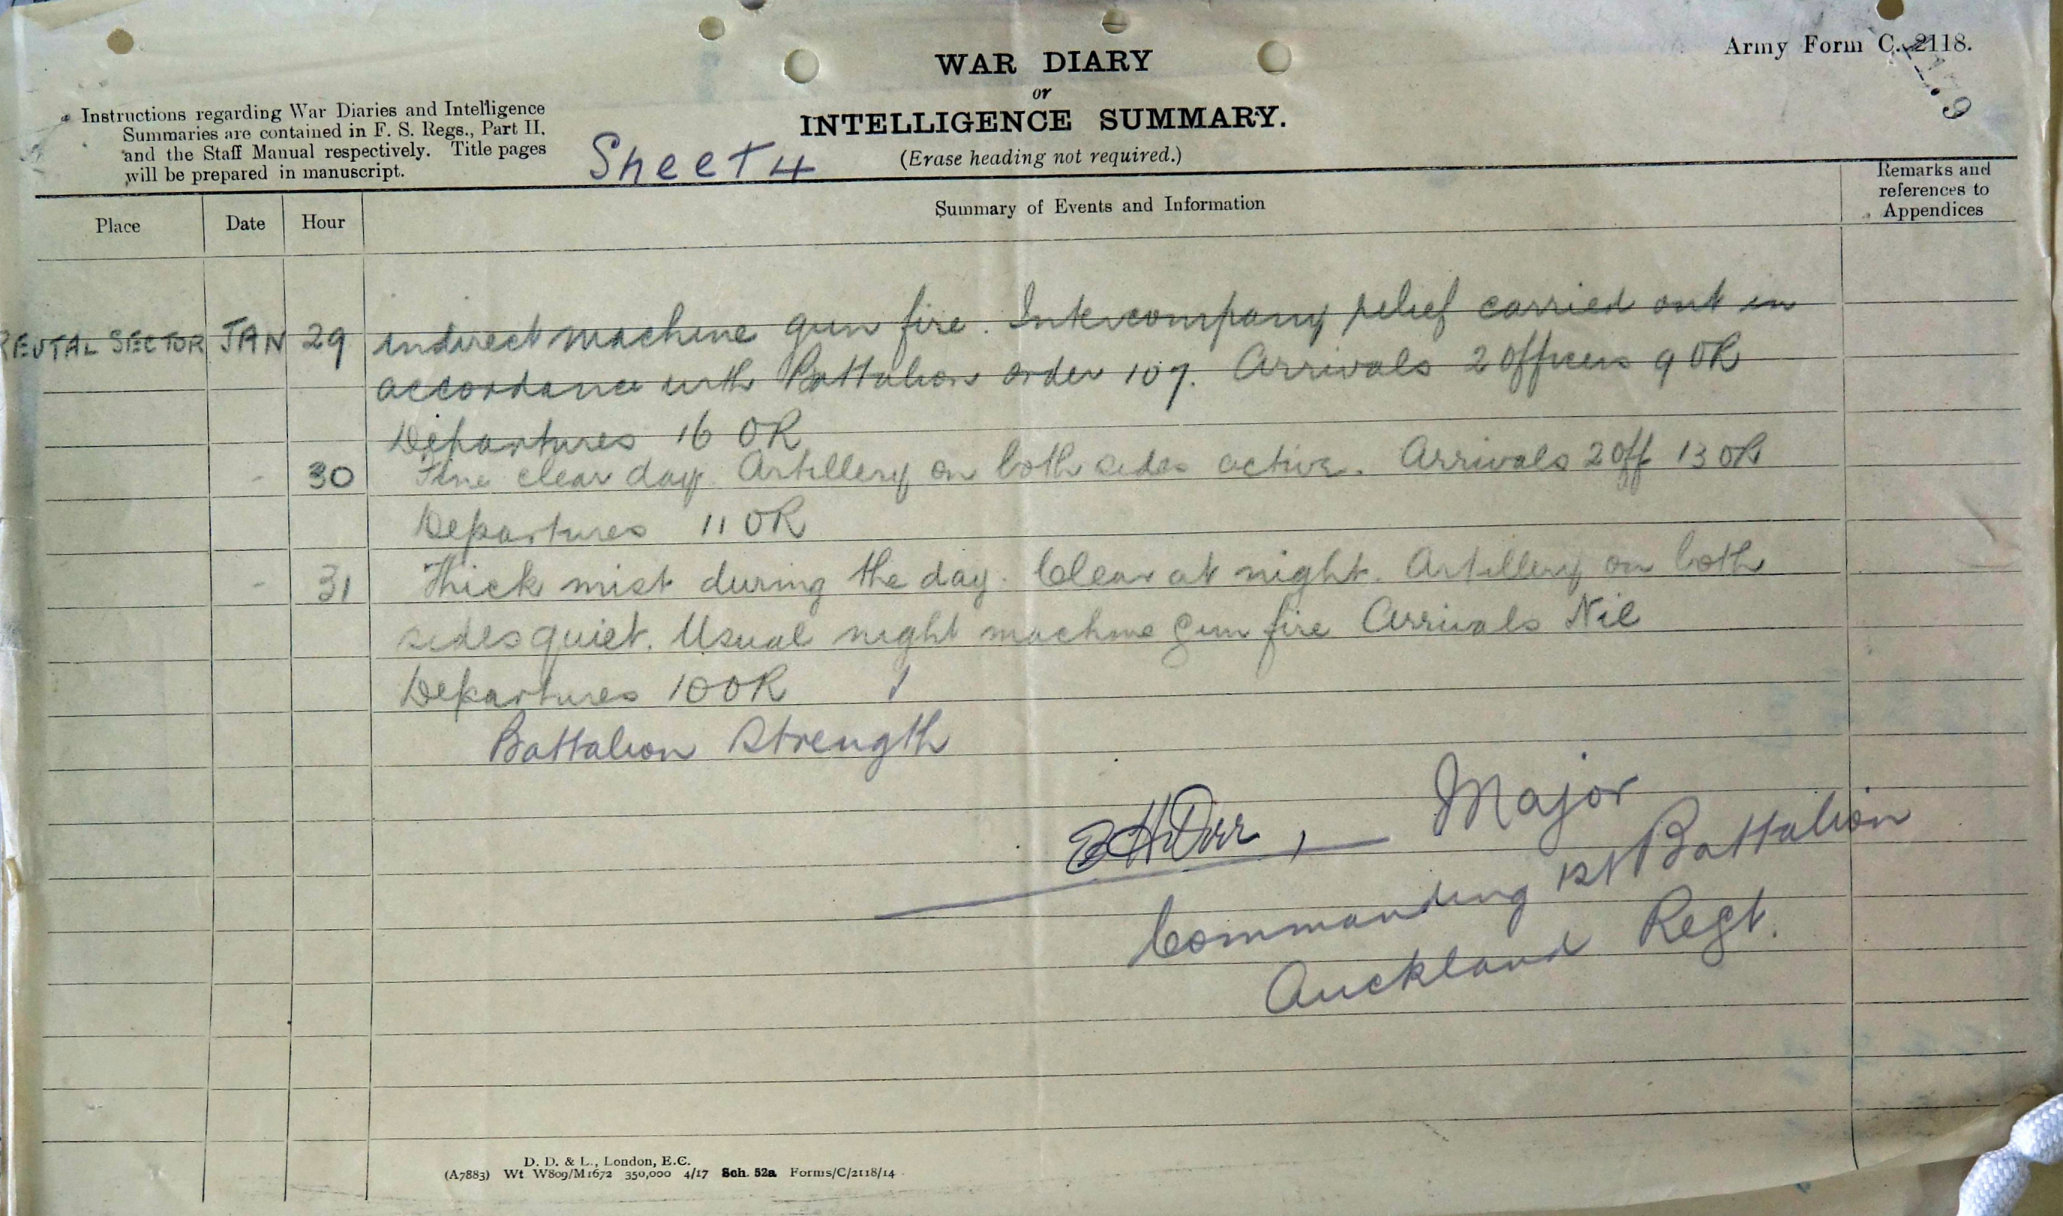 Army Form C. 2118.
WAR DIARY
or
INTELLIGENCE SUMMARY.
(Erase heading not required.)
Instructions regarding War Diaries and Intelligence
Summaries are contained in F. S. Regs., Part II.
and the Staff Manual respectively. Title pages
will be prepared in manuscript.
Sheet 4
Place Date Hour Summary of Events and Information Remarks and
references to
Appendices
SECTOR JAN 29 indirect machine gun fire. Intercompany relief carried out in
accordance with Battalion order 107. Arrivals 2 Officers 9 OR
Departures 16 OR
- 30 Fine clear day. Artillery on both sides active. Arrivals 2 off 13 OR
Departures 11 OR
- 31 Thick mist during the day. Clear at night. Artillery on both
sides quiet. Usual night machine gun fire Arrivals Nil
Departures 10 OR
Battalion Strength
Major
Commanding 1st Battalion
Auckland Regt.
D. D. & L., London, E.C.
(A7883) Wt W809/M1672 350,000 4/17 Sch. 52a Forms/C/2118/14